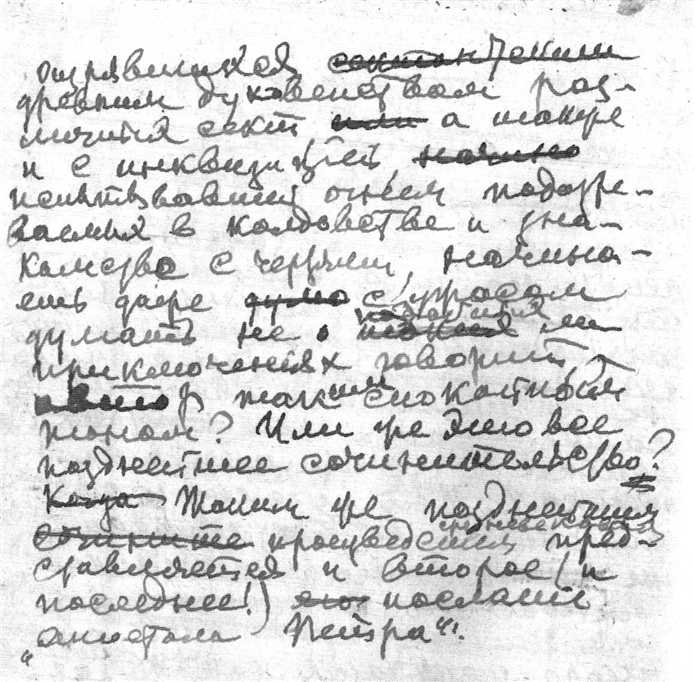 отравлявшихся сектантскими
древним духовенством раз-
личных сект или а также
и с инквизицией, начино
испытывавшей огнем подозре-
ваемых в колдовстве и зна-
комстве с чертом, начина-
ешь даже думо с ужасом
думать не о подобных ли
приключениях говорит
автор таким спокойным
тоном? Или же это все
позднейшее сочинительство?
Когда Таким же позднейшим
сочините произведением средневековья пред-
ставляется и второе (и
последнее!) его послание
"апостола Петра".